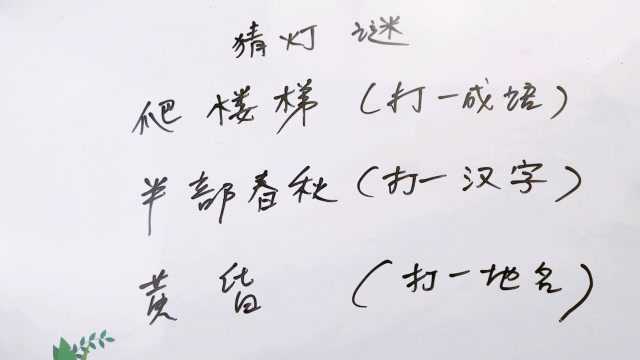 猜灯谜
爬楼梯(打一成语)
半部春秋(打一汉字)
黄昏(打一地名)